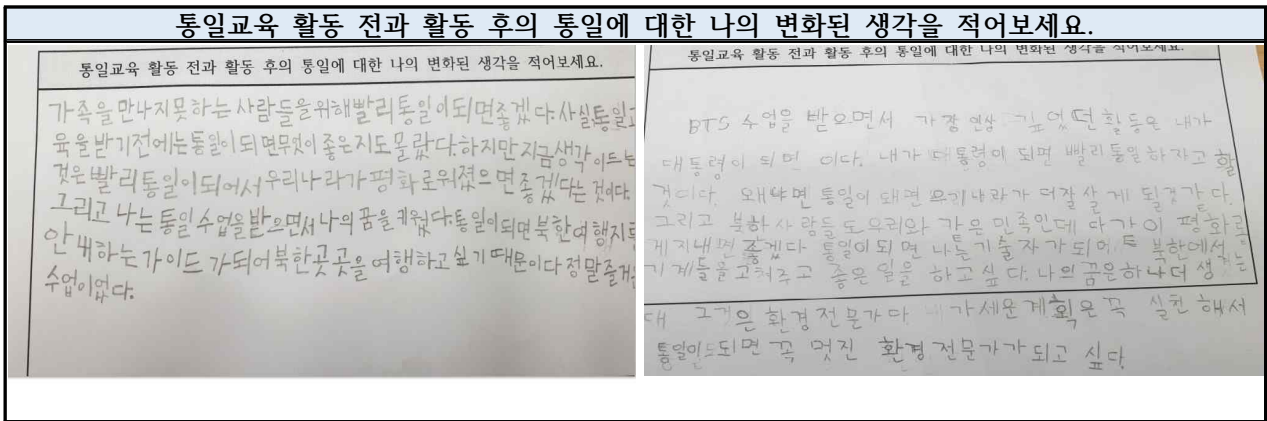 통일교육 활동 전과 활동 후의 통일에 대한 나의 변화된 생각을 적어보세요.
통일교육 활동 전과 활동 후의 통일에 대한 나의 변화된 생각을 적어보세요.
가족을 만나지못하는 사람들을위해빨리통일이되면좋겠다.사실통일교
육을받기전에는통일이되면무엇이좋은지도몰랐다.하지만지금생각이드는
것은빨리통일이되어서우리나라가평화로워졌으면좋겠다는것이다.
그리고 나는통일수업을받으면서나의꿈을키웠다.통일이되면북한여행지를
안내하는가이드가되어북한곳곳을여행하고싶기때문이다정말즐거운
수업이었다.
통일교육 활동 전과 활동 후의 통일에 대한 나의 변화된 생각을 적어보세요.
BTS 수업을 받으면서 가장 인상 깊었던 활동은 내가
대통령이 되면 이다. 내가 대통령이 되면 빨리통일하자고 할
것이다. 왜냐면 통일이 돼면 우리나라가 더잘살게 될것같다.
그리고 북한사람들도 우리와 같은 민족인데 다같이 평화로
게지내면 좋겠다 통일이되면 나는기술자가되어 북한에서
기계들을고쳐주고 좋은일을 하고싶다.나의 꿈은하나더 생
대 그것은환경전문가다. 내가세운계획은꼭 실천해서
통일이 되면 꼭 멋진 환경전문가가되고 싶다